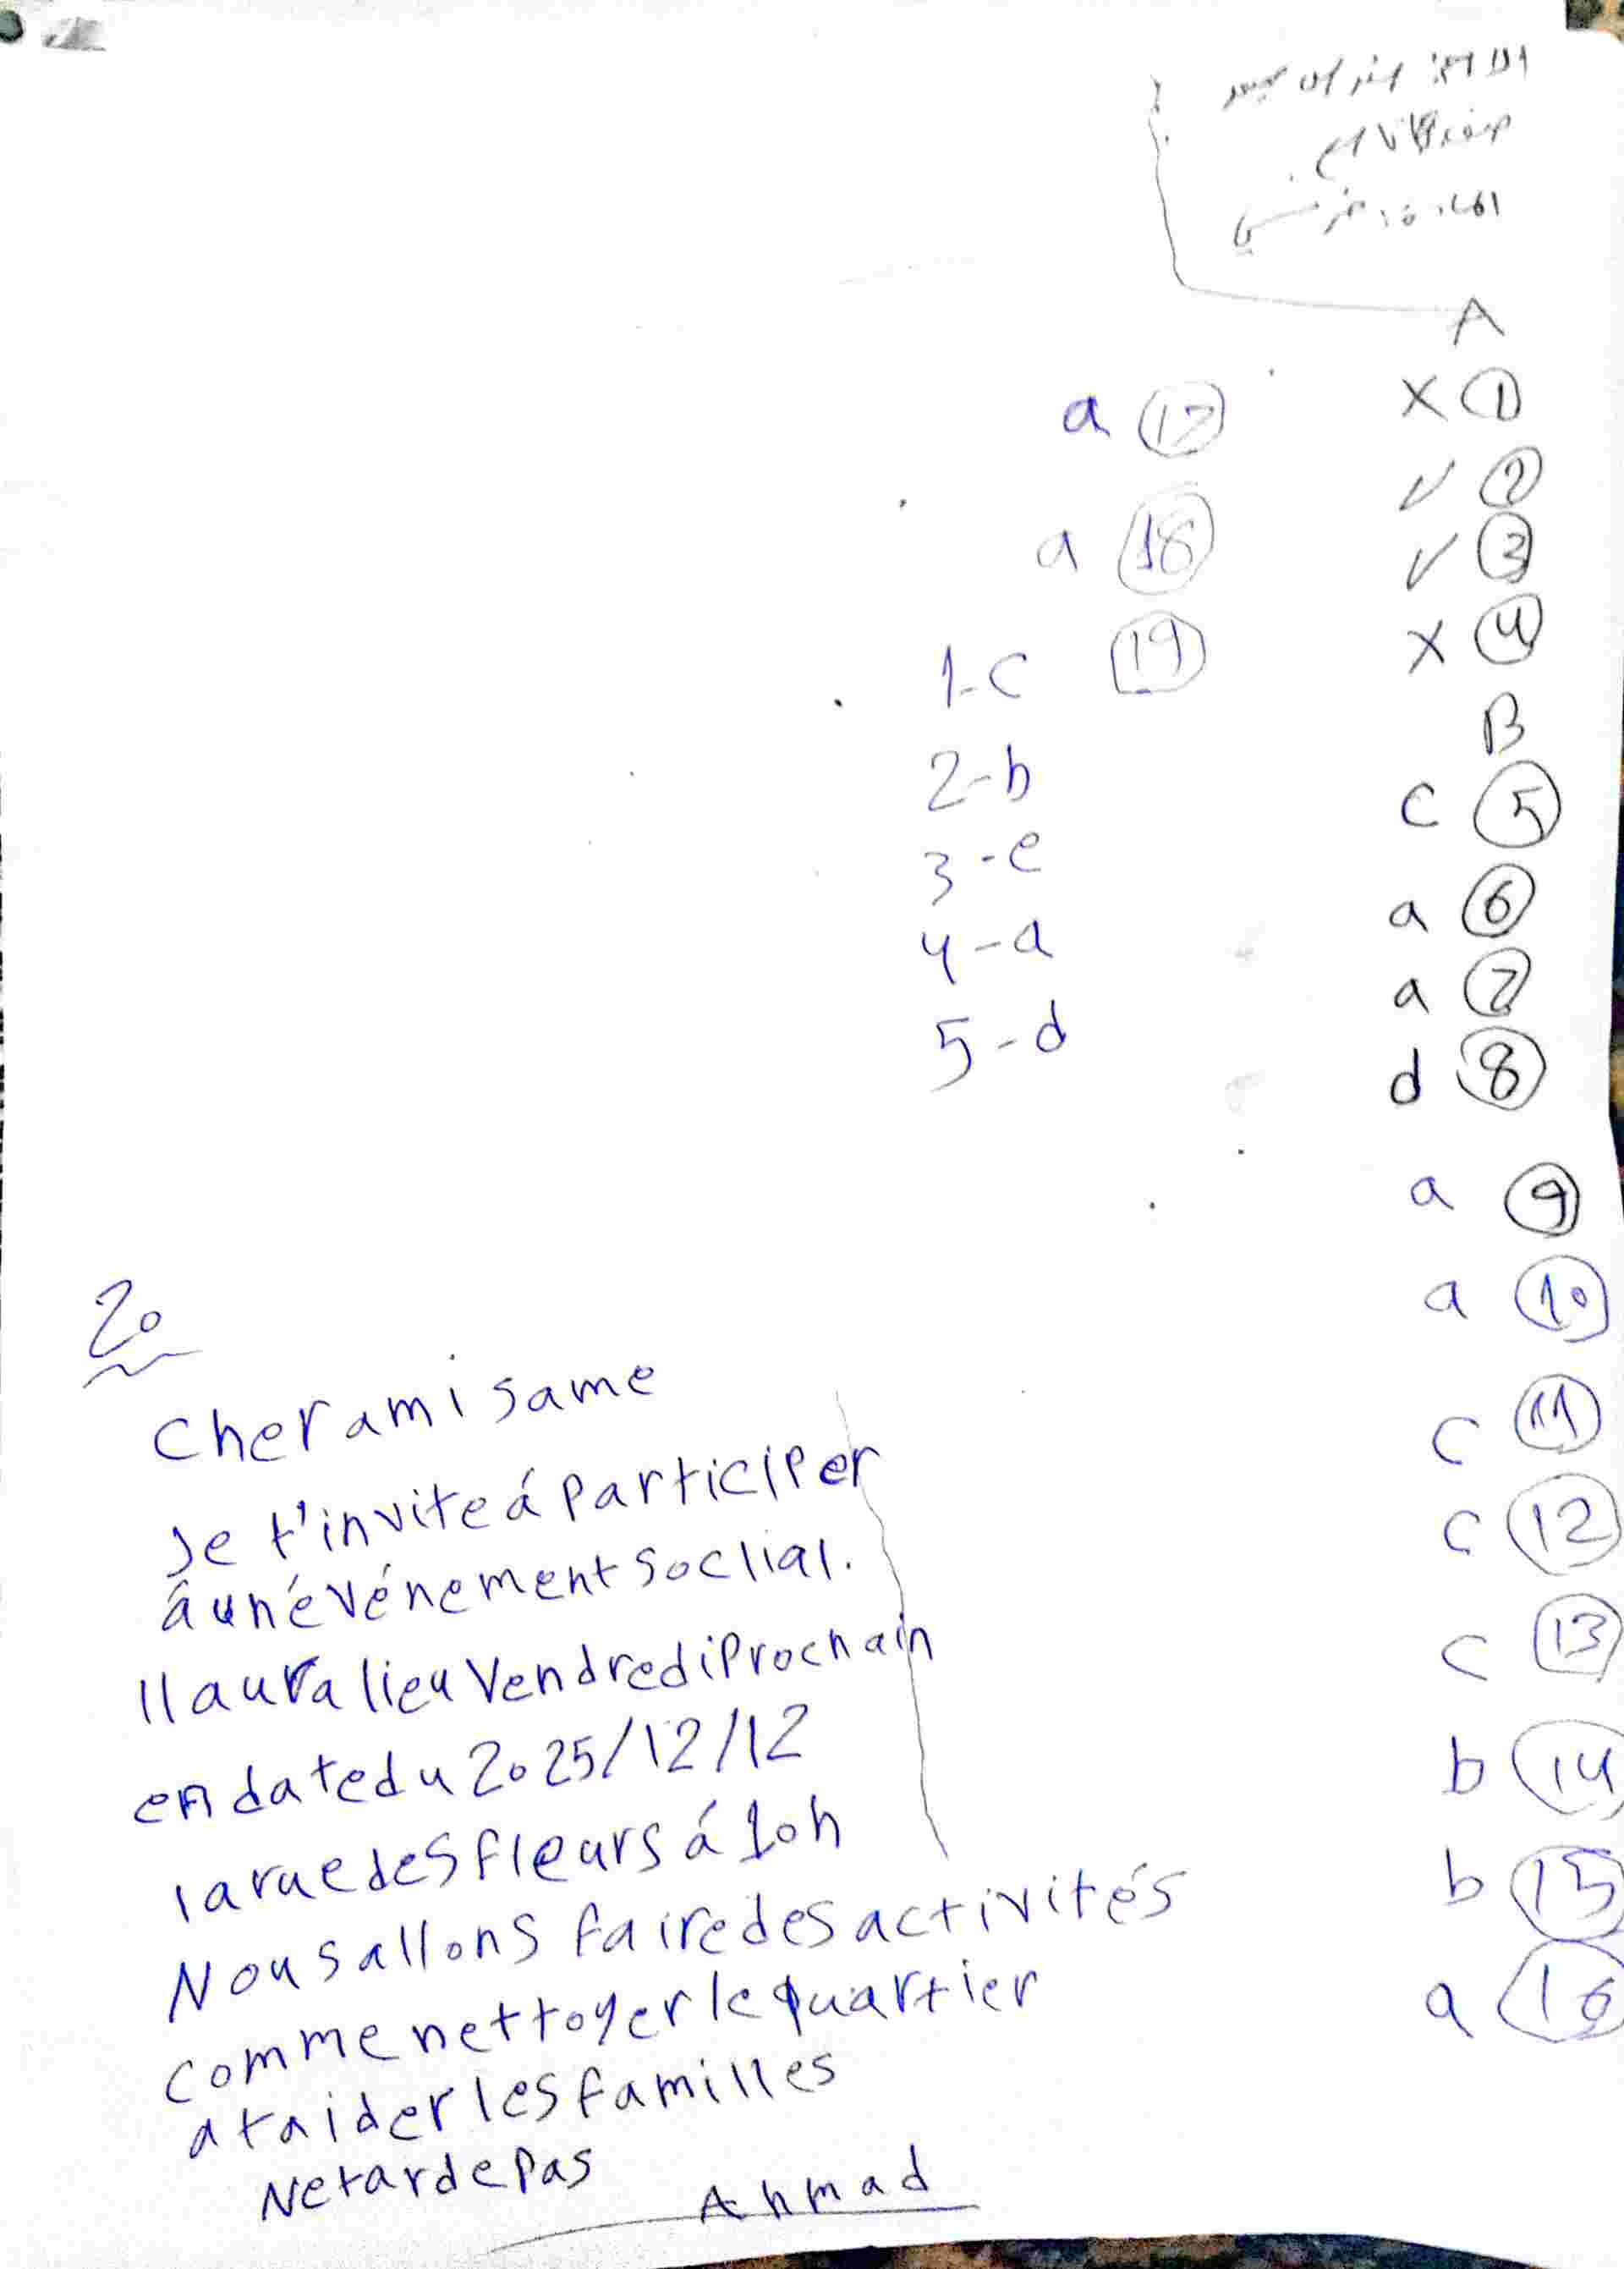 الاسم:
المادة: فرنسي
A
① X
② ✓
③ ✓
④ X
B
⑤ c
⑥ a
⑦ a
⑧ d
⑨ a
⑩ a
⑪ c
⑫ c
⑬ c
⑭ b
⑮ b
⑯ a
⑰ a
⑱ a
⑲ 1-c
2-b
3-e
4-a
5-d
20
Cher ami same
Je t'invite á participer
á un événement soclial.
Il aura lieu Vendredi Prochain
en date du 2025/12/12
la rue des fleurs á 10h
Nous allons faire des activités
comme nettoyer le quartier
at aider les familles
Ne tarde pas
Ahmad